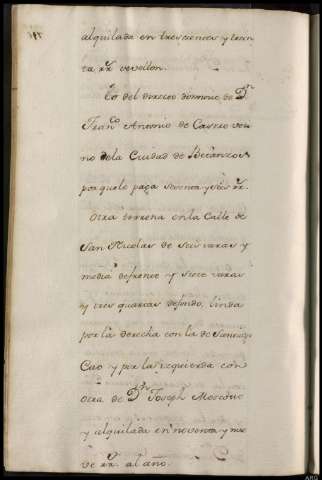 alquilada en trescientos y trein
ta rr. de vellon.
Es del directo dominio de Dn.
Franco. Antonio de Castro veci
no dela Ciudad de Betanzos
porquele paga setenta y seis rr.
Otra terrena en la Calle de
San Nicolas de seis varas y
media defrente y siete varas
y tres quartas defondo, linda
por la derecha con la de Santiago
Cao y por la izquierda con
otra de Dn. Joseph Moscoso
y alquilada en noventa y nue
ve rr. al año.
ARG